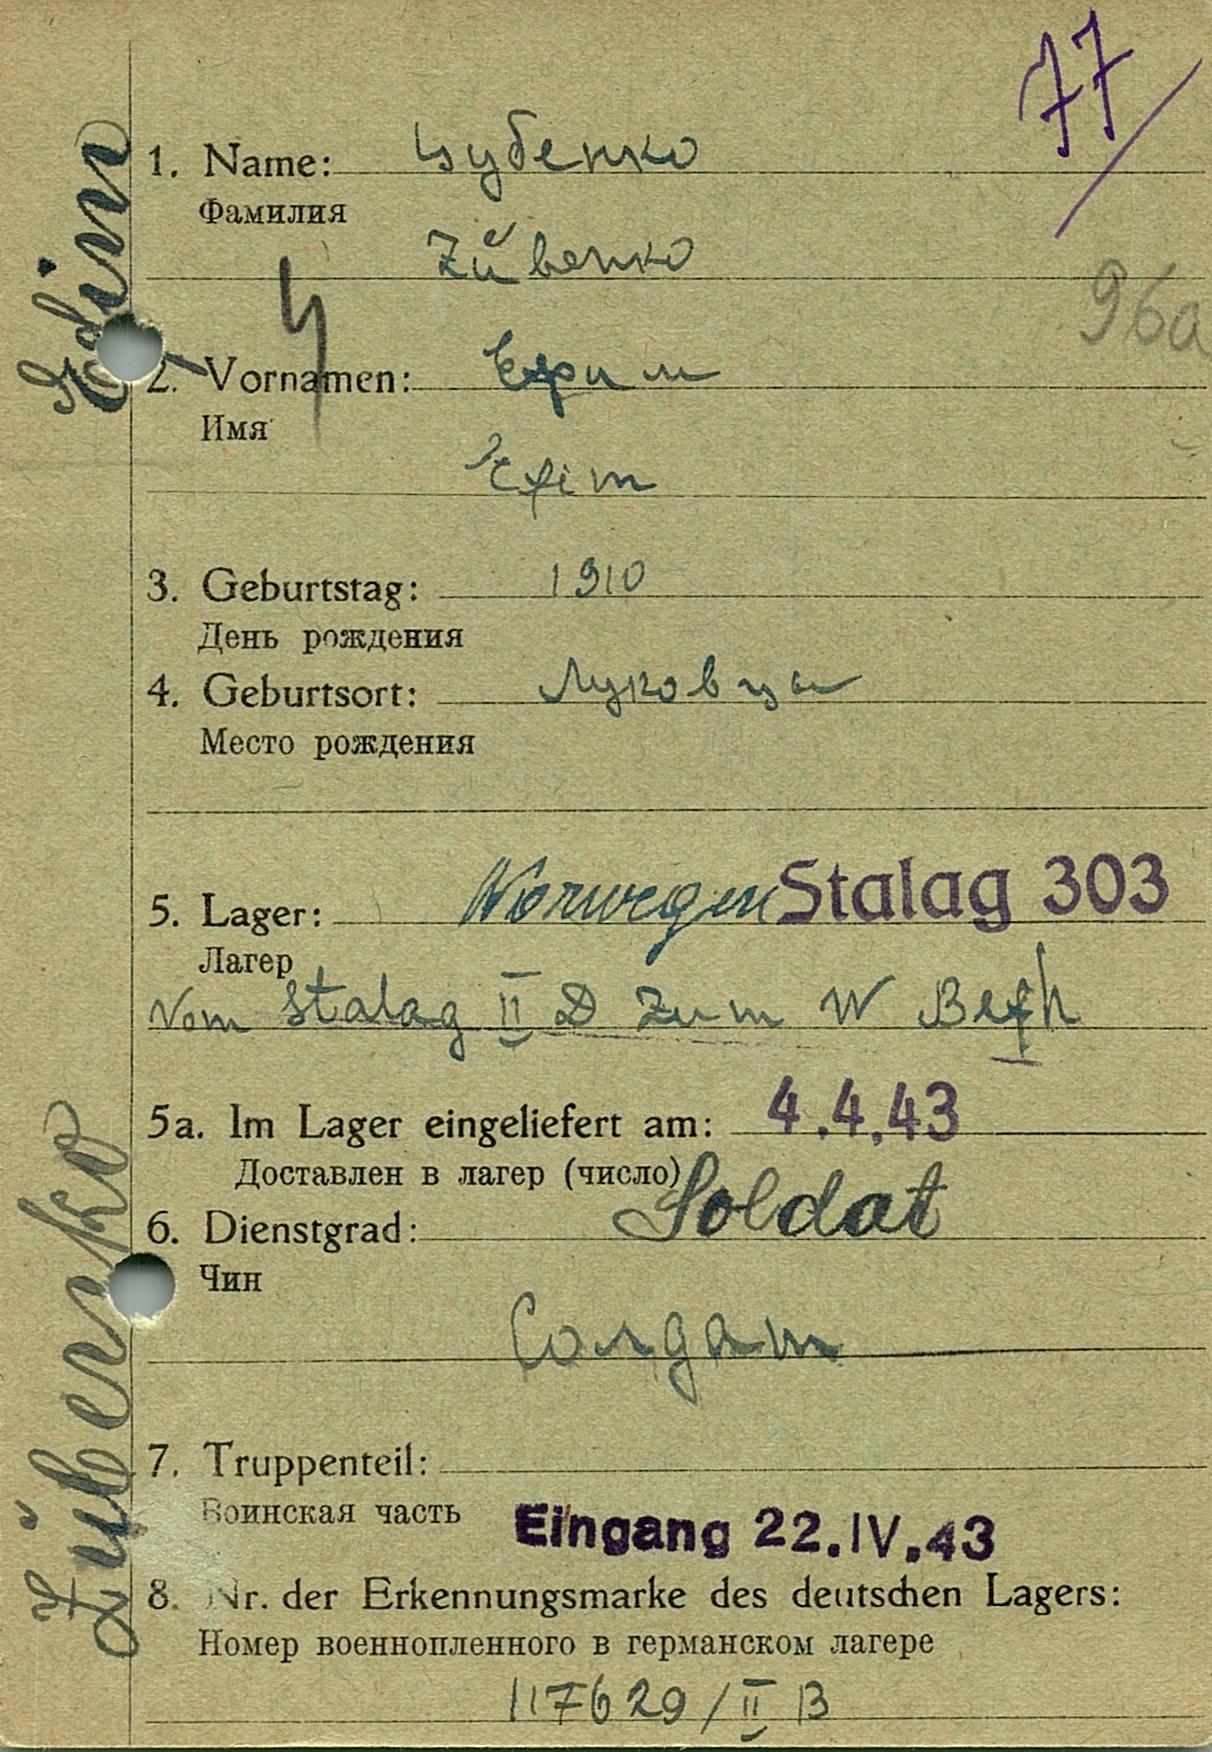 77
1. Name: Цубенко
Фамилия
Zübenko
96a
2. Vornamen: Ефим
Имя
Efim
3. Geburtstag: 1910
День рождения
4. Geburtsort: Луковцы
Место рождения
5. Lager: Norwegen Stalag 303
Лагер
Vom Stalag II D zum W Befh
5a. Im Lager eingeliefert am: 4.4.43
Доставлен в лагер (число)
6. Dienstgrad: Soldat
Чин
Солдат
7. Truppenteil:
Воинская часть
Eingang 22.IV.43
8. Nr. der Erkennungsmarke des deutschen Lagers:
Номер военнопленного в германском лагере
117629/II B
Zübenko Efim